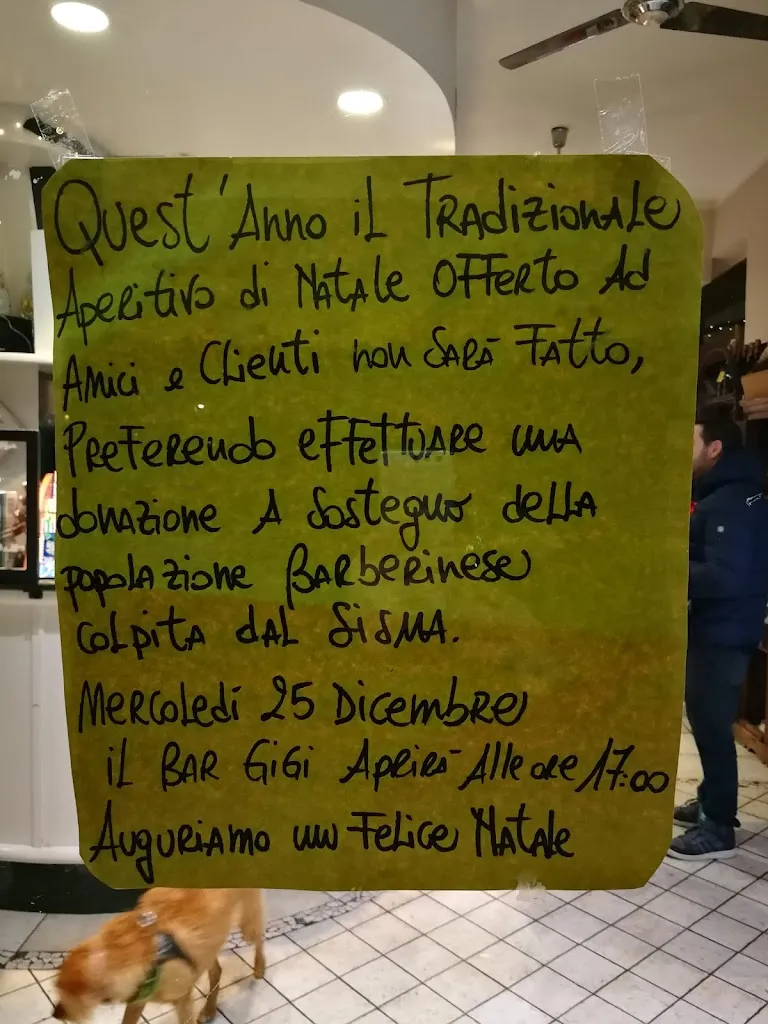 Quest'Anno il Tradizionale
Aperitivo di Natale offerto ad
Amici e Clienti non sarà fatto,
Preferendo effettuare una
donazione a sostegno della
popolazione Barberinese
colpita dal sisma.
Mercoledì 25 Dicembre
il BAR GiGi Aprirà Alle ore 17:00
Auguriamo un Felice Natale